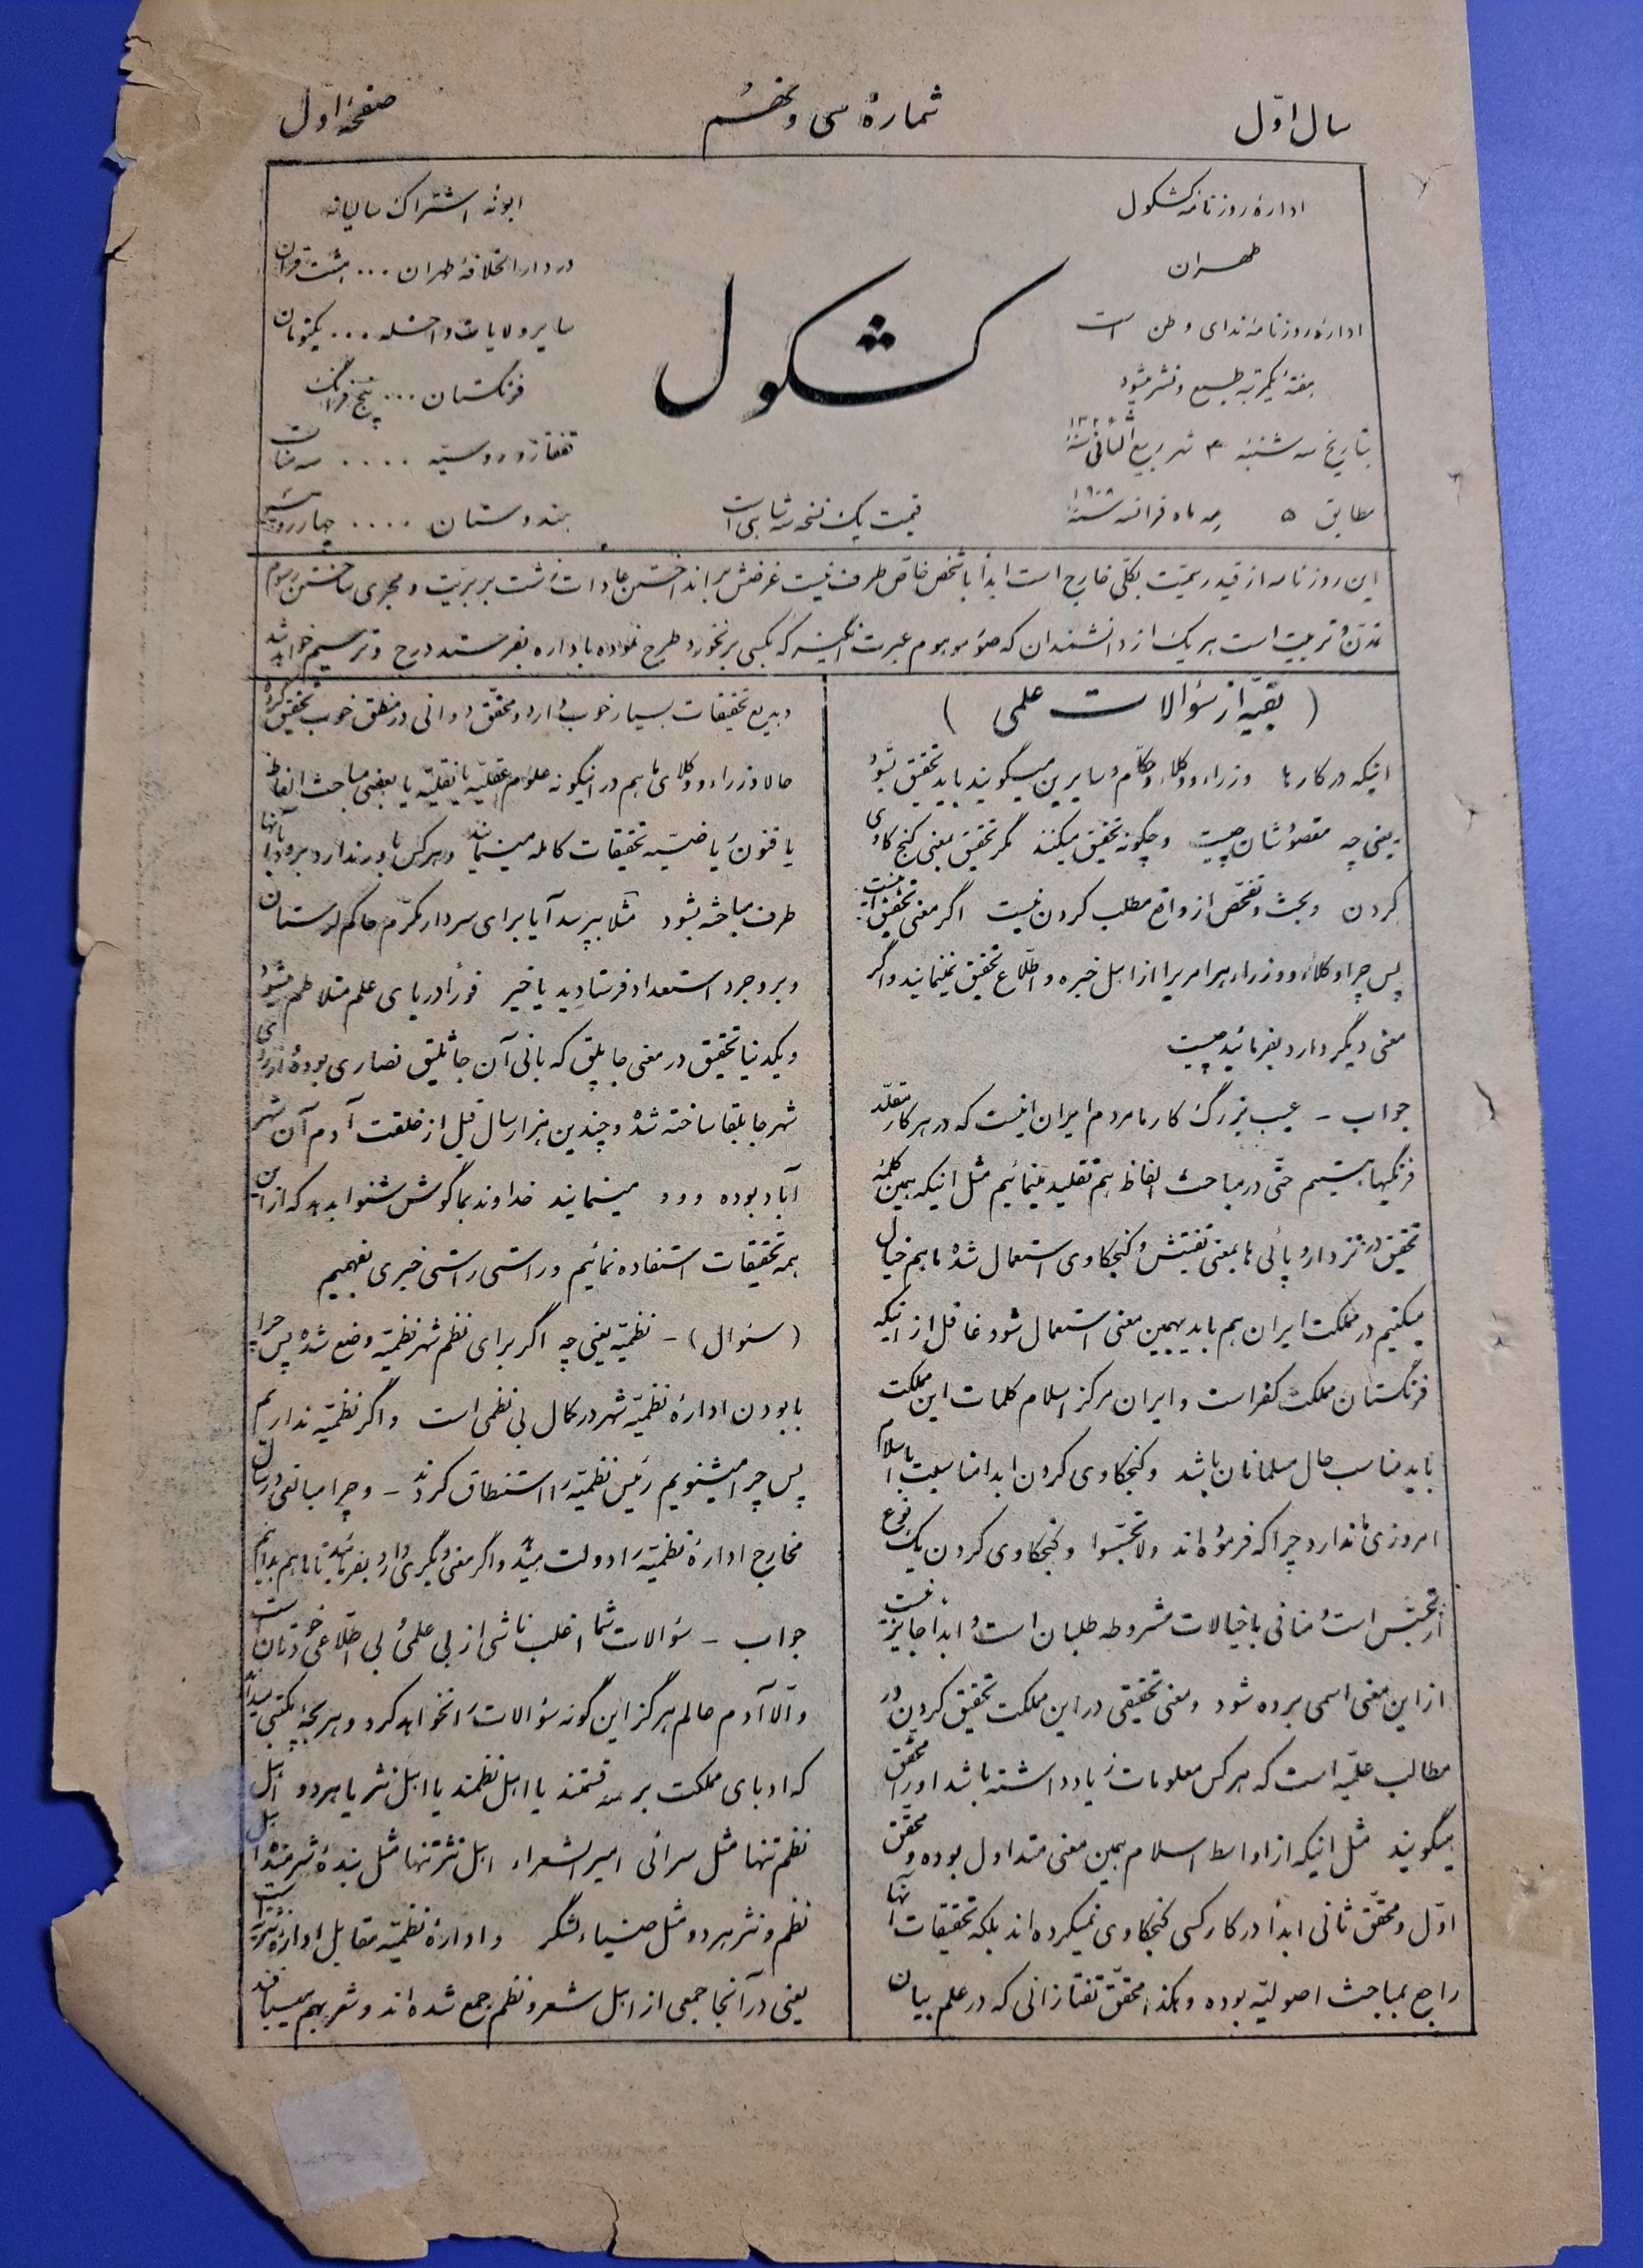 سال اوّل
شمارهٔ سی و نهم
صفحهٔ اوّل
ادارهٔ روزنامهٔ کشکول
طهران
ادارهٔ روزنامهٔ ندای وطن است
هفتهٔ یکمرتبه طبع و نشر میشود
بتاریخ سه شنبهٔ ۴ شهر ربیع الثانی سنهٔ ۱۳۲۶
مطابق ۵ مه ماه فرانسه سنهٔ ۱۹۰۸
کشکول
قیمت یک نسخه سه شاهی است
ابونهٔ اشتراک سالیانه
در دارالخلافهٔ طهران ... هشت قران
سایر ولایات داخله ... یکتومان
فرنگستان ... پنج فرانک
قفقاز و روسیّه .... سه منات
هندوستان .... چهار روپیه
این روزنامه از قید رسمیّت بکلّی خارج است ابداً با شخص خاصّ طرف نیست غرضش برانداختن عادات زشت بربریّت و مجری ساختن رسوم
تمدّن و تربیت است هر یک از دانشمندان که صورت موهوم عبرت انگیز که بکسی برنخورد طرح نموده باداره بفرستد درج و ترسیم خواهد شد
( بقیّه از سؤالات علمی )
اینکه در کارها وزراء و وکلاء و حکّام و سایرین میگویند باید تحقیق بشود
یعنی چه مقصودشان چیست و چگونه تحقیق میکنند مگر تحقیق بمعنی کنج کاوی
کردن و بحث و تفحّص از واقع مطلب کردن نیست اگر معنی تحقیق اینست
پس چرا وکلاء و وزراء هر امریرا از اهل خبره و اطّلاع تحقیق نمینمایند و اگر
معنی دیگر دارد بفرمائید چیست
جواب - عیب بزرگ کار ما مردم ایران اینست که در هر کار مقلّد
فرنگیها هستیم حتّی در مباحث الفاظ هم تقلید مینمائیم مثل اینکه همین کلمهٔ
تحقیق در نزد اروپائی ها بمعنی تفتیش و کنجکاوی استعمال شده ما هم خیال
میکنیم در مملکت ایران هم باید بهمین معنی استعمال شود غافل از اینکه
فرنگستان مملکت کفر است و ایران مرکز اسلام کلمات این مملکت
باید مناسب حال مسلمانان باشد و کنجکاوی کردن ابدا مناسبت با اسلام
امروزی ما ندارد چرا که فرموده اند ولا تجسّسوا و کنجکاوی کردن یک نوع
از تجسّس است و منافی با خیالات مشروطه طلبان است و ابداً جایز نیست
از این معنی اسمی برده شود و معنی تحقیقی در این مملکت تحقیق کردن در
مطالب علمیّه است که هر کس معلومات زیاد داشته باشد او را محقّق
میگویند مثل اینکه از اواسط اسلام همین معنی متداول بوده و محقّق
اوّل و محقّق ثانی ابداً در کار کسی کنجکاوی نمیکرده اند بلکه تحقیقات آنها
راجع بمباحث اصولیّه بوده و هکذا محقّق تفتازانی که در علم بیان
و بدیع تحقیقات بسیار خوب دارد و محقّق دوانی در منطق خوب تحقیق کرده
حالا وزراء و وکلای ما هم در اینگونه علوم عقلیّه یا نقلیّه یا بعضی مباحث الفاظ
یا فنون ریاضیّه تحقیقات کامله مینمایند و هر کس باور ندارد برود با آنها
طرف مباحثه بشود مثلا بپرسد آیا برای سردار مکرّم حاکم لرستان
و بروجرد استعداد فرستادید یا خیر فوراً دریای علم متلاطم میشود
و یکدنیا تحقیق در معنی جابلق که بانی آن جاثلیق نصاری بوده
شهر جابلقا ساخته شده و چندین هزار سال قبل از خلقت آدم آن شهر
آباد بوده و و و مینمایند خداوند بما گوش شنوا بدهد که از این
همه تحقیقات استفاده نمائیم و راستی راستی خبری بفهمیم
(سئوال) - نظمیّه یعنی چه اگر برای نظم شهر نظمیّه وضع شده پس چرا
با بودن ادارهٔ نظمیّه شهر در کمال بی نظمی است و اگر نظمیّه نداریم
پس چرا میشنویم رئیس نظمیّه را استنطاق کردند - و چرا مبالغی در سال
مخارج ادارهٔ نظمیّه را دولت میدهد و اگر معنی دیگری دارد بفرمائید تا ما هم بدانیم
جواب - سؤالات شما اغلب ناشی از بی علمی و بی اطّلاعی خودتان است
و الّا آدم عالم هرگز این گونه سؤالات را نخواهد کرد و هر بچهٔ مکتبی میداند
که ادبای مملکت بر سه قسمند یا اهل نظمند یا اهل نثر یا هر دو اهل
نظم تنها مثل سرائی امیرالشعراء اهل نثر تنها مثل بندهٔ شرمنده اهل
نظم و نثر هر دو مثل ضیاء لشگر و ادارهٔ نظمیّه مقابل ادارهٔ نثریّه است
یعنی در آنجا جمعی از اهل شعر و نظم جمع شده اند و شعر بهم میبافند